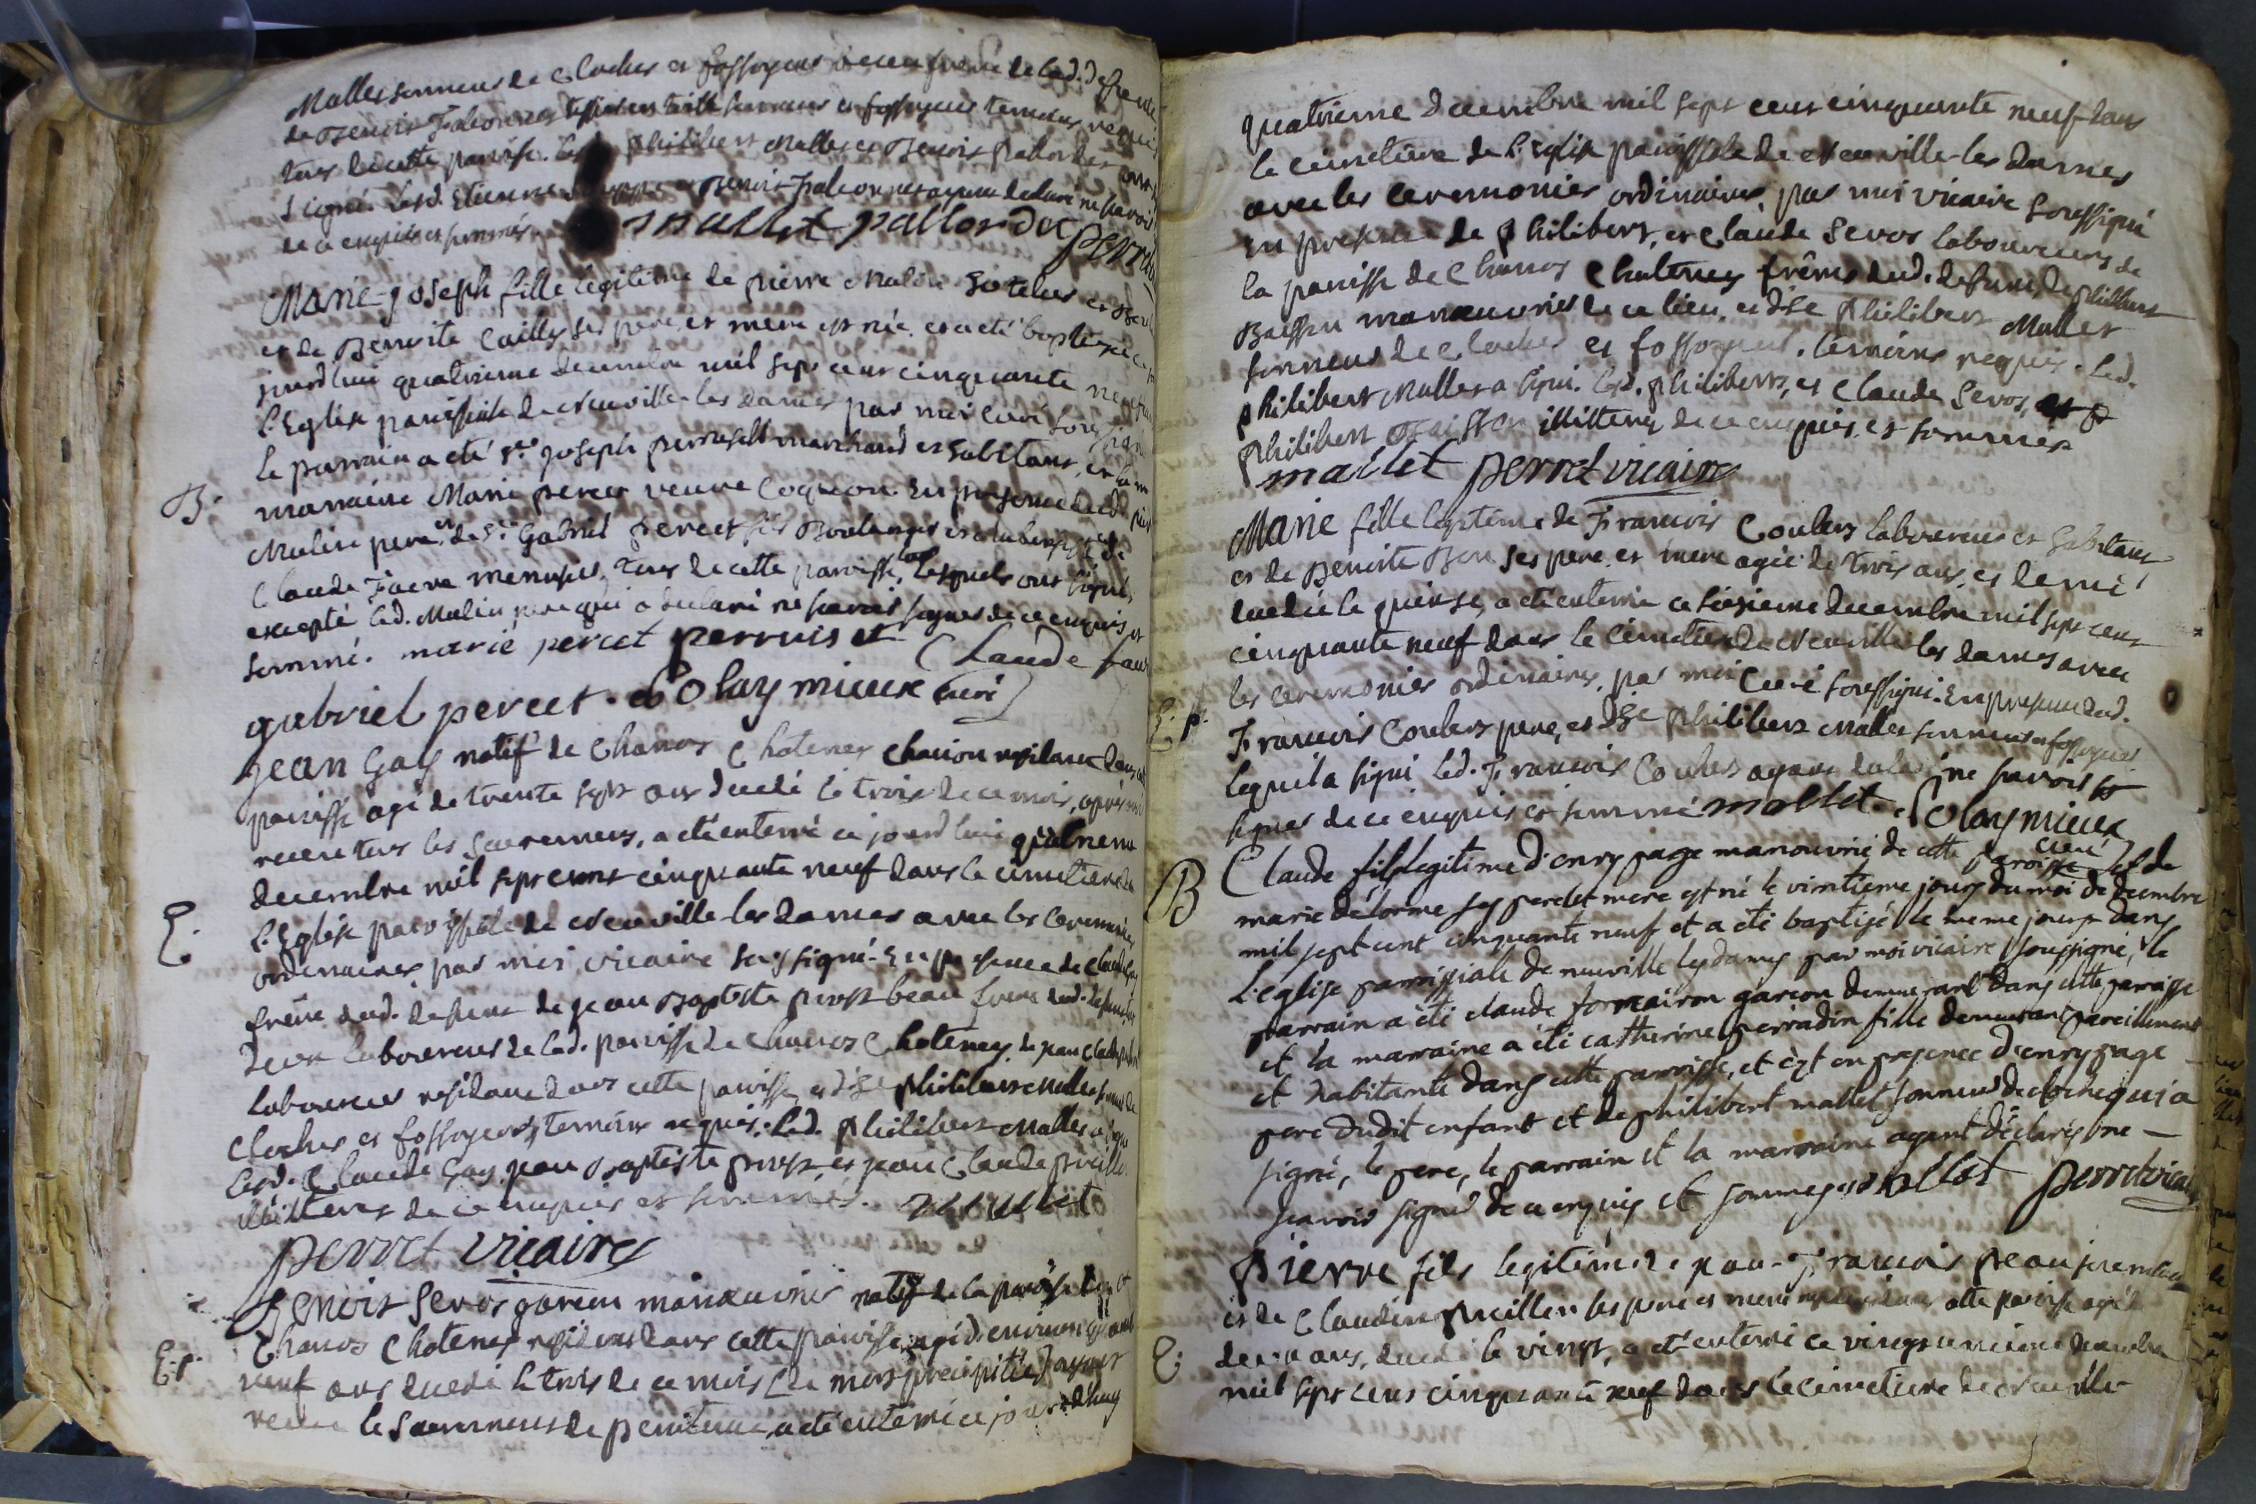 Mallet sonneur de cloches et fossoyeur
de Benoit Falconnet sonneur et fossoyeur temoins requis
tous de cette paroisse. Philibert Mallet et Benoit pallordet ont
signé. Led. Etienne et Benoit Falconnet ayant declaré ne scavoir
de ce enquis et sommés. mallet pallordet
perret
Marie-joseph fille legitime de pierre Malin
et de Benoite Cailly ses pere et mere est née et a eté baptisée
jourdhui quatrieme decembre mil sept cent cinquante neuf
l'Eglise paroissiale de Neuville-les dames par moi Curé
le parrain a eté Sr. joseph perruiset marchand et habitant, et la
B. marraine Marie percet veuve Coqueon. En presence dud.
Malin pere, et de Sr. Gabriel percet fils Boulanger et de
Claude Faure menusier, tous de cette paroisse, lesquels ont signé,
excepté led. Malin pere qui a declaré ne scavoir signer de ce enquis et
sommé. marie percet perruiset Claude faure
gabriel percet. Solaymieux curé
jean Gay natif de Chanos Chatenay residant dans
paroisse agé de trente sept ans decedé le trois de ce mois, après
receu tous les sacremens, a eté enterré ce jourdhui quatrieme
decembre mil sept cens cinquante neuf dans le cimetiere de
E. l'Eglise paroissiale de Neuville-les dames avec les ceremonies
ordinaires par moi vicaire soussigné. En presence de Claude Gay
frère dud. defunt de jean Baptiste prost beau frere dud. defunt
laboureurs de lad. paroisse de Chanos Chatenay, de jean Claude
laboureur residant dans cette paroisse, et de Philibert Mallet sonneur de
cloches et fossoyeur temoins requis. Led. Philibert Mallet a signé
Lesd. Claude Gay, jean Baptiste prost, et jean Claude
illitterés de ce enquis et sommés. mallet
perret vicaire
Benoit Sevos garçon manœuvrier natif de la paroisse de
Chanos Chatenay residant dans cette paroisse, agé d'environ
E. p. neuf ans decedé le trois de ce mois (de mort precipitée) ayant
receu le sacrement de penitence, a eté enterré ce jourd'huy
quatrieme decembre mil sept cens cinquante neuf dans
le cimetiere de l'Eglise paroissiale de Neuville-les dames
avec les ceremonies ordinaires, par moi vicaire soussigné
en presence de Philibert, et Claude Sevos laboureurs de
la paroisse de Chanos Chatenay frères dud. defunt, de philibert
manœuvrier de ce lieu, et de Philibert Mallet
sonneur de cloches et fossoyeur, temoins requis. Led.
Philibert Mallet a signé. Lesd. Philibert, et Claude Sevos, et
Philibert illitterés de ce enquis et sommés
mallet perret vicaire
Marie fille legitime de Francois Coulers laboureur et habitant
et de Benoite Bon ses pere et mere agée de trois ans, et demi
decedée le quinze, a eté enterrée ce seizieme decembre mil sept cens
cinquante neuf dans le cimetiere de Neuville les dames avec
les ceremonies ordinaires, par moi Curé soussigné. En presence dud.
E. p. Francois Coulers pere, et de Philibert Mallet sonneur et fossoyeur
lequel a signé led. Francois Coulers ayant declaré ne scavoir
signer de ce enquis et sommé mallet. Solaymieux
curé
B Claude fils legitime d'enry page manouvrié de cette paroisse et de
marie délorme ses pere et mere est né le vintieme jours du moi de decembre
mil sept cent cinquante neuf et a été baptisé le meme jours dans
L'eglise parroissiale de neuville les dames par moi vicaire soussigné, le
parrain a été claude formairon garcon demeurant dans cette paroisse
et la marraine a été catherine perradin fille demeurant pareillement
et habitante dans cette parroisse, et c'est en presence d'enry page
pere dudit enfant et de philibert mallet sonneur de cloche qui a
signé, le pere, le parrain et la marraine ayant déclarés ne
scavoir signer de ce enquis et sommés mallet perret vicaire
Pierre fils legitime de jean-Francois
et de Claudine ses pere et mere dans cette paroisse agé
E. de ans, decedé le vingt, a eté enterré ce vingt unieme decembre
mil sept cens cinquante neuf dans le cimetiere de Neuville